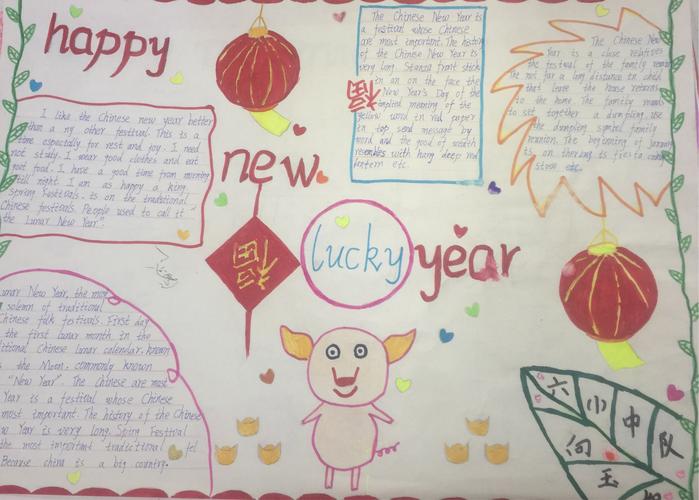 happy
new
lucky
year
福
I like the Chinese new year better
than a ny other festival. This is a
time especially for rest and joy. I need
not study. I wear good clothes and eat
good food. I have a good time from morning
till night. I am as happy a king
Spring Festivals. is on the traditional
Chinese festivals. People used to call it "
the Lunar New Year".
The Chinese New Year is
a festival whose Chinese
are most important. The history
of the Chinese New Year is
very long. front stick
in an on the face the
福
New Year's Day of the
meaning of the
yellow word in red paper
in top send message by
word and the good of wealth
resembles with hang deep red
lantern etc.
The Chinese New
Year is a close relatives
the festival of the family
The not far a long distance in
that leave the house returns
to the home. The family
to sit together a dumpling, use
the dumpling symbol family
reunion. The beginning of January
is on
stove etc.
Lunar New Year, the most
solemn of traditional
Chinese folk festivals. First day
the first lunar month in the
Chinese lunar calendar, known
the Moon, commonly known
"New Year". The Chinese are most
Year is a festival whose Chinese
most important. The history of the Chinese
Year is very long. Spring Festival
the most important tradictional fel
Because china is a big country.
六小中队
向玉